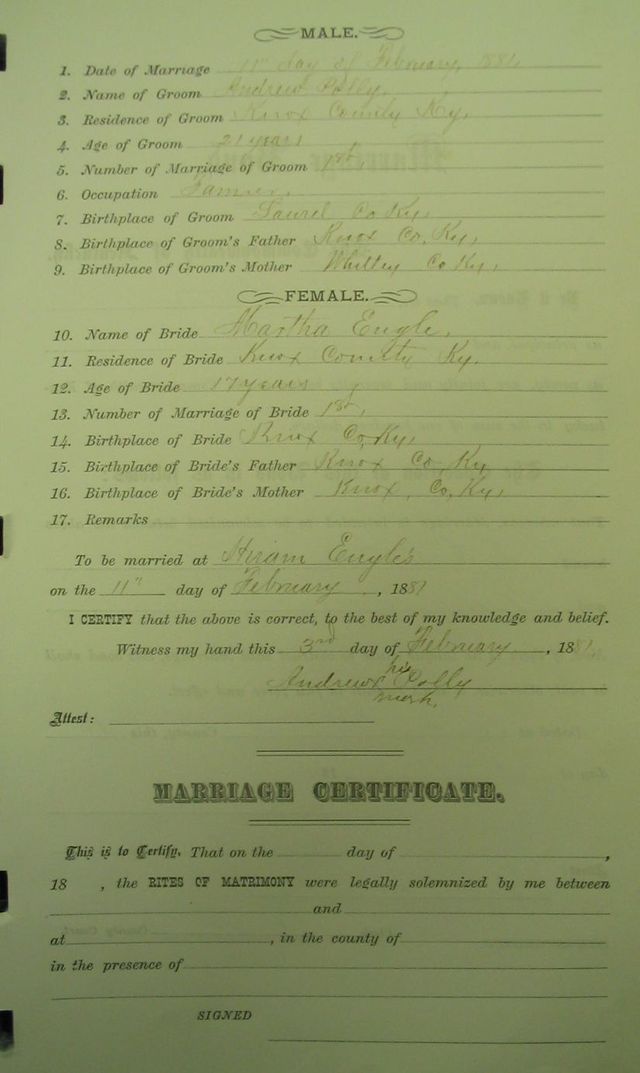 MALE.
1. Date of Marriage 11" day of February, 1881,
2. Name of Groom Andrew Polly,
3. Residence of Groom Knox County Ky,
4. Age of Groom 21 years
5. Number of Marriage of Groom 1st
6. Occupation Farmer,
7. Birthplace of Groom Laurel Co Ky,
8. Birthplace of Groom's Father Knox Co, Ky,
9. Birthplace of Groom's Mother Whitley Co Ky,
FEMALE.
10. Name of Bride Martha Engle,
11. Residence of Bride Knox County Ky.
12. Age of Bride 17 years
13. Number of Marriage of Bride 1st,
14. Birthplace of Bride Knox Co, Ky,
15. Birthplace of Bride's Father Knox Co, Ky
16. Birthplace of Bride's Mother Knox, Co, Ky,
17. Remarks
To be married at Hiram Engle's
on the 11" day of February, 1881
I CERTIFY that the above is correct, to the best of my knowledge and belief.
Witness my hand this 3rd day of February, 1881,
Andrew x his Polly
mark,
Attest:
MARRIAGE CERTIFICATE.
This is to Certify, That on the day of ,
18 , the RITES OF MATRIMONY were legally solemnized by me between
and
at , in the county of
in the presence of
SIGNED